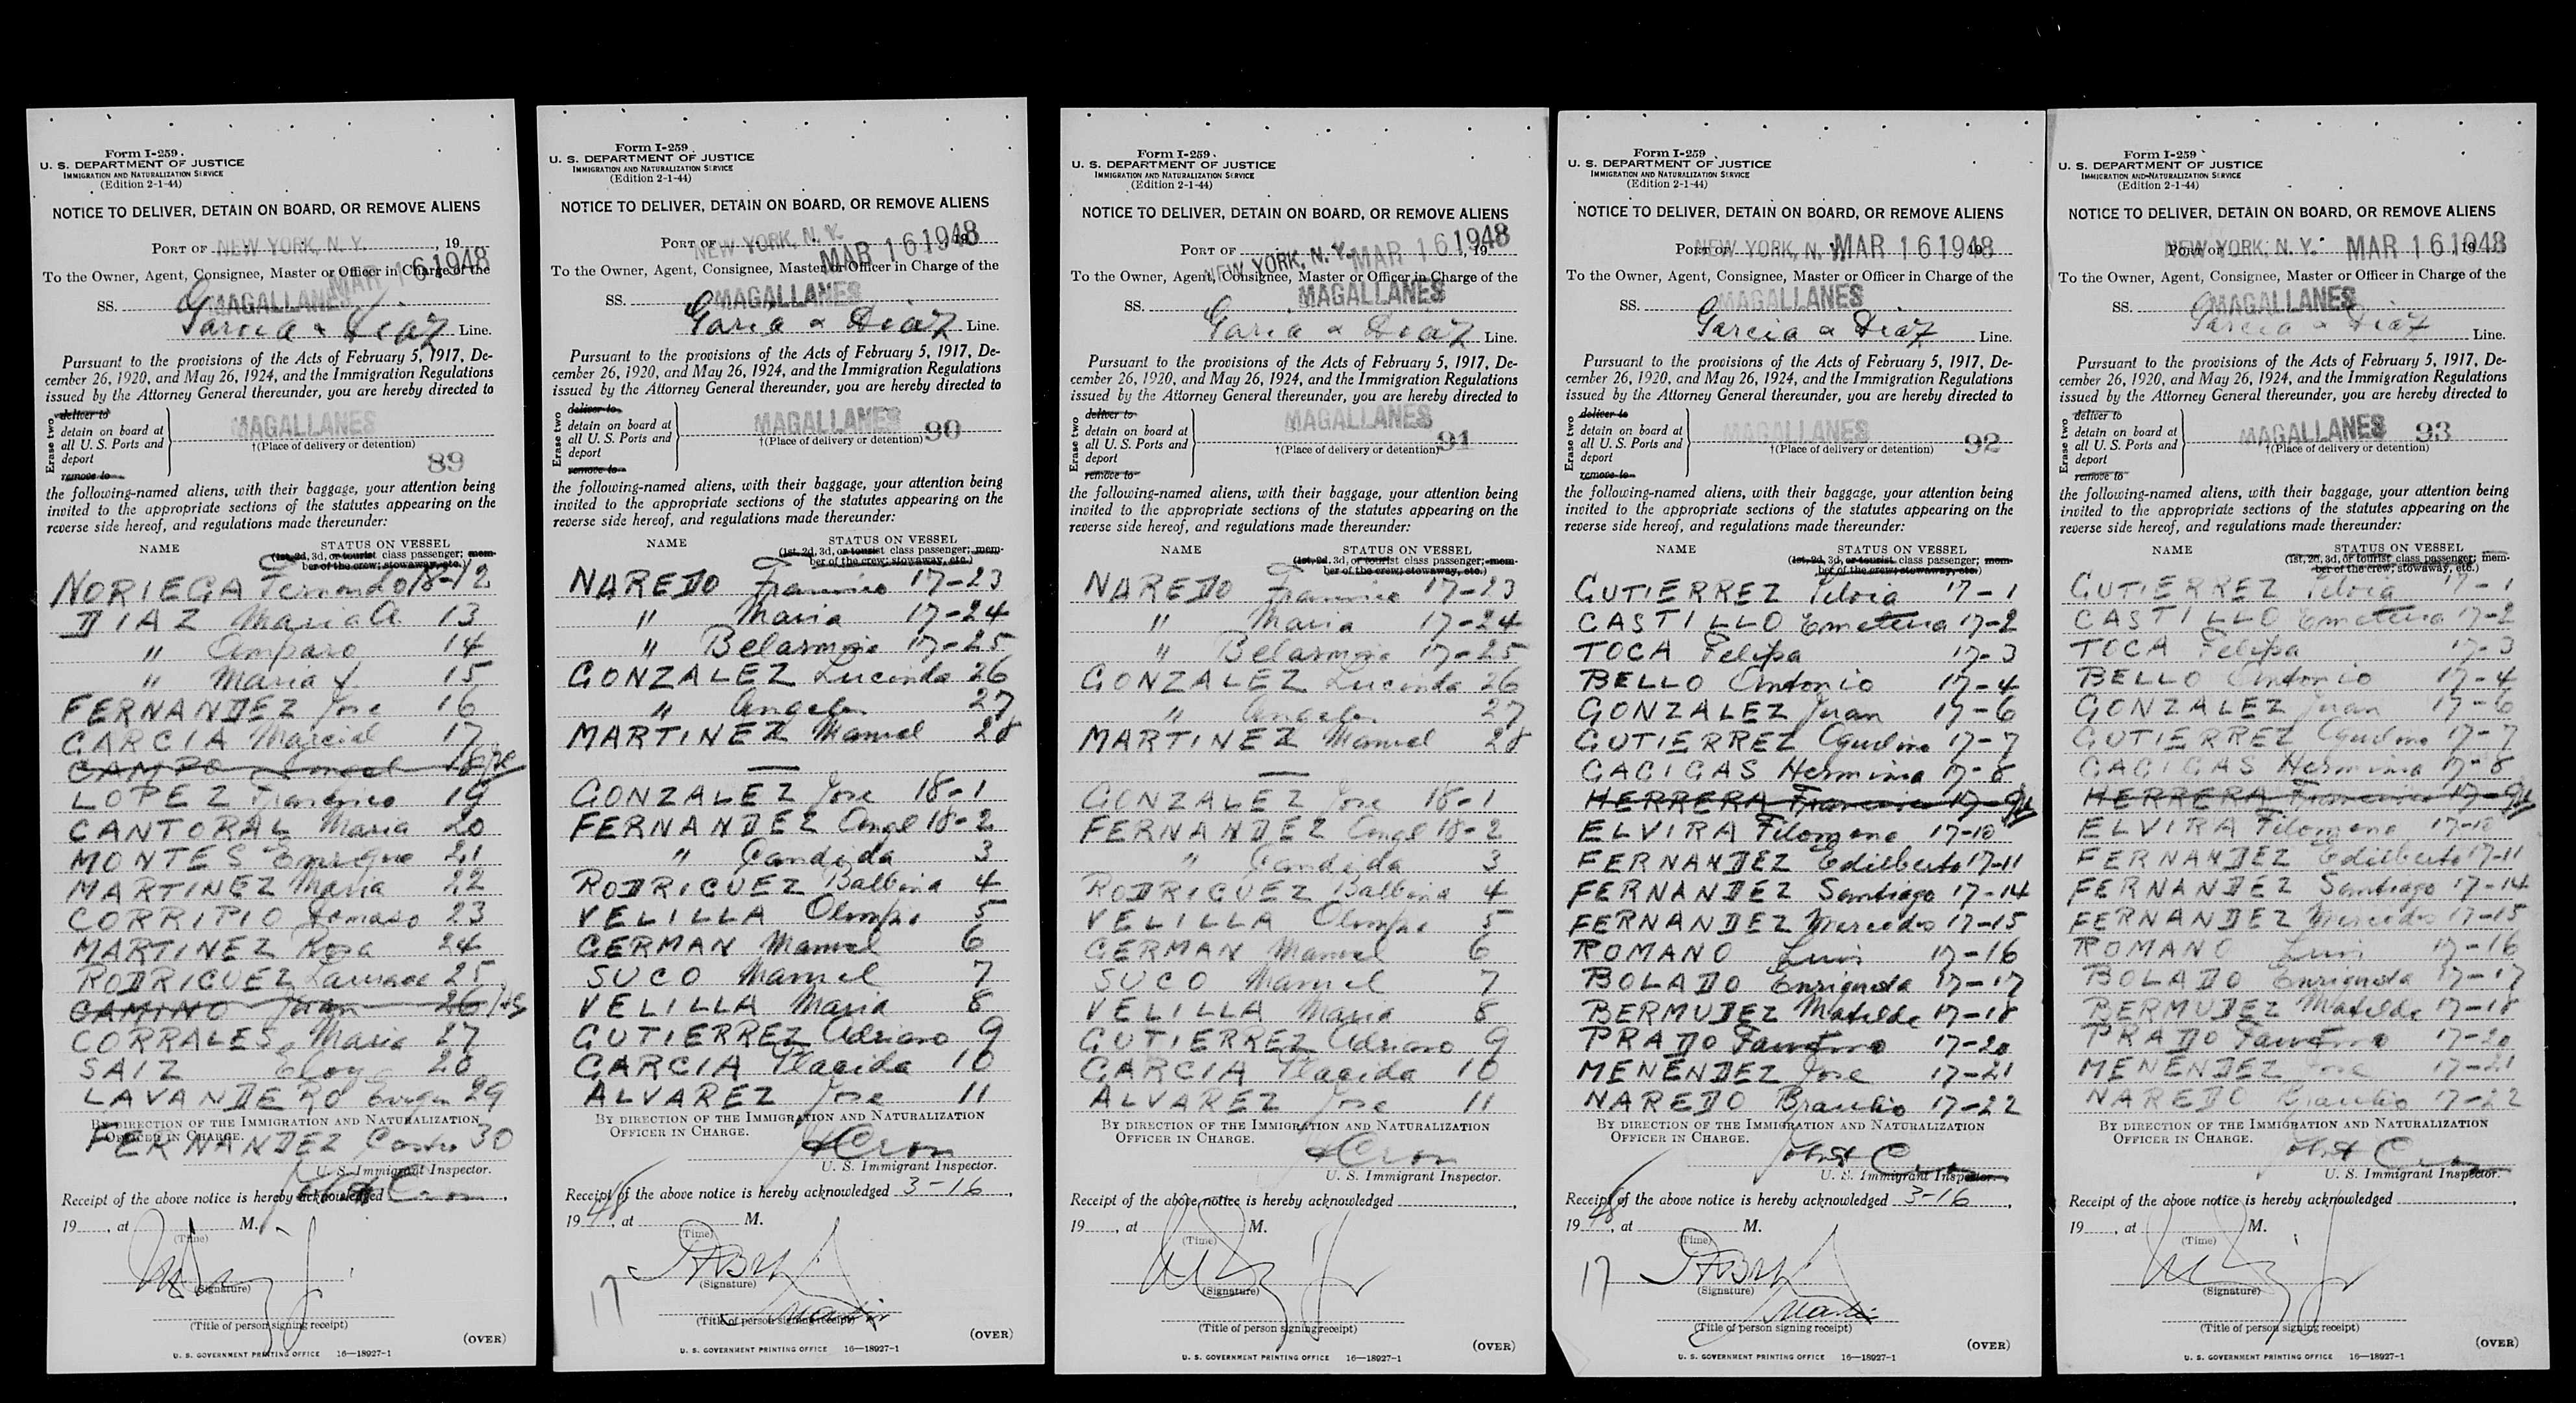 Form I-259.
U. S. DEPARTMENT OF JUSTICE
IMMIGRATION AND NATURALIZATION SERVICE
(Edition 2-1-44)
NOTICE TO DELIVER, DETAIN ON BOARD, OR REMOVE ALIENS
PORT OF NEW YORK, N. Y. , 19
MAR 16 1948
To the Owner, Agent, Consignee, Master or Officer in Charge of the
SS. MAGALLANES
Garcia & Diaz Line.
Pursuant to the provisions of the Acts of February 5, 1917, De-
cember 26, 1920, and May 26, 1924, and the Immigration Regulations
issued by the Attorney General thereunder, you are hereby directed to
Erase two
deliver to
detain on board at
all U. S. Ports and
deport
remove to
MAGALLANES
†(Place of delivery or detention)
89
the following-named aliens, with their baggage, your attention being
invited to the appropriate sections of the statutes appearing on the
reverse side hereof, and regulations made thereunder:
NAME STATUS ON VESSEL
(1st, 2d, 3d, or tourist class passenger; mem-
ber of the crew; stowaway, etc.)
NORIEGA Fernando 18-12
DIAZ Maria A. 13
" Amparo 14
" Maria 15
FERNANDEZ Jose 16
GARCIA Marcial 17
CAMPO 18
LOPEZ Francisco 19
CANTORAL Maria 20
MONTES Enrique 21
MARTINEZ Maria 22
CORRIPIO Damaso 23
MARTINEZ Rosa 24
RODRIGUEZ 25
CAMINO Juan 26
CORRALES Maria 27
SAIZ Eloy 28
LAVANDERO 29
BY DIRECTION OF THE IMMIGRATION AND NATURALIZATION
OFFICER IN CHARGE.
FERNANDEZ 30
U. S. Immigrant Inspector.
Receipt of the above notice is hereby acknowledged
19 , at M.
(Time)
(Signature)
(Title of person signing receipt)
(OVER)
U. S. GOVERNMENT PRINTING OFFICE 16—18927-1
Form I-259
U. S. DEPARTMENT OF JUSTICE
IMMIGRATION AND NATURALIZATION SERVICE
(Edition 2-1-44)
NOTICE TO DELIVER, DETAIN ON BOARD, OR REMOVE ALIENS
PORT OF NEW YORK, N. Y. 19
MAR 16 1948
To the Owner, Agent, Consignee, Master or Officer in Charge of the
SS. MAGALLANES
Garcia & Diaz Line.
Pursuant to the provisions of the Acts of February 5, 1917, De-
cember 26, 1920, and May 26, 1924, and the Immigration Regulations
issued by the Attorney General thereunder, you are hereby directed to
Erase two
deliver to
detain on board at
all U. S. Ports and
deport
remove to
MAGALLANES 90
†(Place of delivery or detention)
the following-named aliens, with their baggage, your attention being
invited to the appropriate sections of the statutes appearing on the
reverse side hereof, and regulations made thereunder:
NAME STATUS ON VESSEL
(1st, 2d, 3d, or tourist class passenger; mem-
ber of the crew; stowaway, etc.)
NAREDO Francisco 17-23
" Maria 17-24
" Belarmina 17-25
GONZALEZ Lucinda 26
" Angela 27
MARTINEZ Manuel 28
—
GONZALEZ Jose 18-1
FERNANDEZ Angel 18-2
" Candida 3
RODRIGUEZ Balbina 4
VELILLA Olimpi 5
GERMAN Manuel 6
SUCO Manuel 7
VELILLA Maria 8
GUTIERREZ Adriano 9
GARCIA Placida 10
ALVAREZ Jose 11
BY DIRECTION OF THE IMMIGRATION AND NATURALIZATION
OFFICER IN CHARGE.
U. S. Immigrant Inspector.
Receipt of the above notice is hereby acknowledged 3-16
1948, at M.
(Time)
17
(Signature)
(Title of person signing receipt)
(OVER)
U. S. GOVERNMENT PRINTING OFFICE 16—18927-1
Form I-259
U. S. DEPARTMENT OF JUSTICE
IMMIGRATION AND NATURALIZATION SERVICE
(Edition 2-1-44)
NOTICE TO DELIVER, DETAIN ON BOARD, OR REMOVE ALIENS
PORT OF NEW YORK, N. Y. , 19
MAR 16 1948
To the Owner, Agent, Consignee, Master or Officer in Charge of the
SS. MAGALLANES
Garcia & Diaz Line.
Pursuant to the provisions of the Acts of February 5, 1917, De-
cember 26, 1920, and May 26, 1924, and the Immigration Regulations
issued by the Attorney General thereunder, you are hereby directed to
Erase two
deliver to
detain on board at
all U. S. Ports and
deport
remove to
MAGALLANES
†(Place of delivery or detention) 91
the following-named aliens, with their baggage, your attention being
invited to the appropriate sections of the statutes appearing on the
reverse side hereof, and regulations made thereunder:
NAME STATUS ON VESSEL
(1st, 2d, 3d, or tourist class passenger; mem-
ber of the crew; stowaway, etc.)
NAREDO Francisco 17-23
" Maria 17-24
" Belarmina 17-25
GONZALEZ Lucinda 26
" Angela 27
MARTINEZ Manuel 28
—
GONZALEZ Jose 18-1
FERNANDEZ Angel 18-2
" Candida 3
RODRIGUEZ Balbina 4
VELILLA Olimpi 5
GERMAN Manuel 6
SUCO Manuel 7
VELILLA Maria 8
GUTIERREZ Adriano 9
GARCIA Placida 10
ALVAREZ Jose 11
BY DIRECTION OF THE IMMIGRATION AND NATURALIZATION
OFFICER IN CHARGE.
U. S. Immigrant Inspector.
Receipt of the above notice is hereby acknowledged
19 , at M.
(Time)
(Signature)
(Title of person signing receipt)
(OVER)
U. S. GOVERNMENT PRINTING OFFICE 16—18927-1
Form I-259
U. S. DEPARTMENT OF JUSTICE
IMMIGRATION AND NATURALIZATION SERVICE
(Edition 2-1-44)
NOTICE TO DELIVER, DETAIN ON BOARD, OR REMOVE ALIENS
PORT OF NEW YORK, N. Y. MAR 16 1948 19
To the Owner, Agent, Consignee, Master or Officer in Charge of the
SS. MAGALLANES
Garcia & Diaz Line.
Pursuant to the provisions of the Acts of February 5, 1917, De-
cember 26, 1920, and May 26, 1924, and the Immigration Regulations
issued by the Attorney General thereunder, you are hereby directed to
Erase two
deliver to
detain on board at
all U. S. Ports and
deport
remove to
MAGALLANES 92
†(Place of delivery or detention)
the following-named aliens, with their baggage, your attention being
invited to the appropriate sections of the statutes appearing on the
reverse side hereof, and regulations made thereunder:
NAME STATUS ON VESSEL
(1st, 2d, 3d, or tourist class passenger; mem-
ber of the crew; stowaway, etc.)
GUTIERREZ 17-1
CASTILLO Emeteria 17-2
TOCA Felipa 17-3
BELLO Antonio 17-4
GONZALEZ Juan 17-6
GUTIERREZ 17-7
CACIGAS Herminia 17-8
HERRERA Francisco 17-9
ELVIRA Filomena 17-10
FERNANDEZ Edilberto 17-11
FERNANDEZ Santiago 17-14
FERNANDEZ Mercedes 17-15
ROMANO Luis 17-16
BOLADO Enriqueta 17-17
BERMUDEZ Matilde 17-18
PRADO Faustino 17-20
MENENDEZ Jose 17-21
NAREDO Braulio 17-22
BY DIRECTION OF THE IMMIGRATION AND NATURALIZATION
OFFICER IN CHARGE.
U. S. Immigrant Inspector.
Receipt of the above notice is hereby acknowledged 3-16
1948, at M.
(Time)
17
(Signature)
(Title of person signing receipt)
(OVER)
U. S. GOVERNMENT PRINTING OFFICE 16—18927-1
Form I-259
U. S. DEPARTMENT OF JUSTICE
IMMIGRATION AND NATURALIZATION SERVICE
(Edition 2-1-44)
NOTICE TO DELIVER, DETAIN ON BOARD, OR REMOVE ALIENS
PORT OF NEW YORK, N. Y. MAR 16 1948 19
To the Owner, Agent, Consignee, Master or Officer in Charge of the
SS. MAGALLANES
Garcia & Diaz Line.
Pursuant to the provisions of the Acts of February 5, 1917, De-
cember 26, 1920, and May 26, 1924, and the Immigration Regulations
issued by the Attorney General thereunder, you are hereby directed to
Erase two
deliver to
detain on board at
all U. S. Ports and
deport
remove to
MAGALLANES 93
†(Place of delivery or detention)
the following-named aliens, with their baggage, your attention being
invited to the appropriate sections of the statutes appearing on the
reverse side hereof, and regulations made thereunder:
NAME STATUS ON VESSEL
(1st, 2d, 3d, or tourist class passenger; mem-
ber of the crew; stowaway, etc.)
GUTIERREZ 17-1
CASTILLO Emeteria 17-2
TOCA Felipa 17-3
BELLO Antonio 17-4
GONZALEZ Juan 17-6
GUTIERREZ 17-7
CACIGAS Herminia 17-8
HERRERA Francisco 17-9
ELVIRA Filomena 17-10
FERNANDEZ Edilberto 17-11
FERNANDEZ Santiago 17-14
FERNANDEZ Mercedes 17-15
ROMANO Luis 17-16
BOLADO Enriqueta 17-17
BERMUDEZ Matilde 17-18
PRADO Faustino 17-20
MENENDEZ Jose 17-21
NAREDO Braulio 17-22
BY DIRECTION OF THE IMMIGRATION AND NATURALIZATION
OFFICER IN CHARGE.
U. S. Immigrant Inspector.
Receipt of the above notice is hereby acknowledged
19 , at M.
(Time)
(Signature)
(Title of person signing receipt)
(OVER)
U. S. GOVERNMENT PRINTING OFFICE 16—18927-1